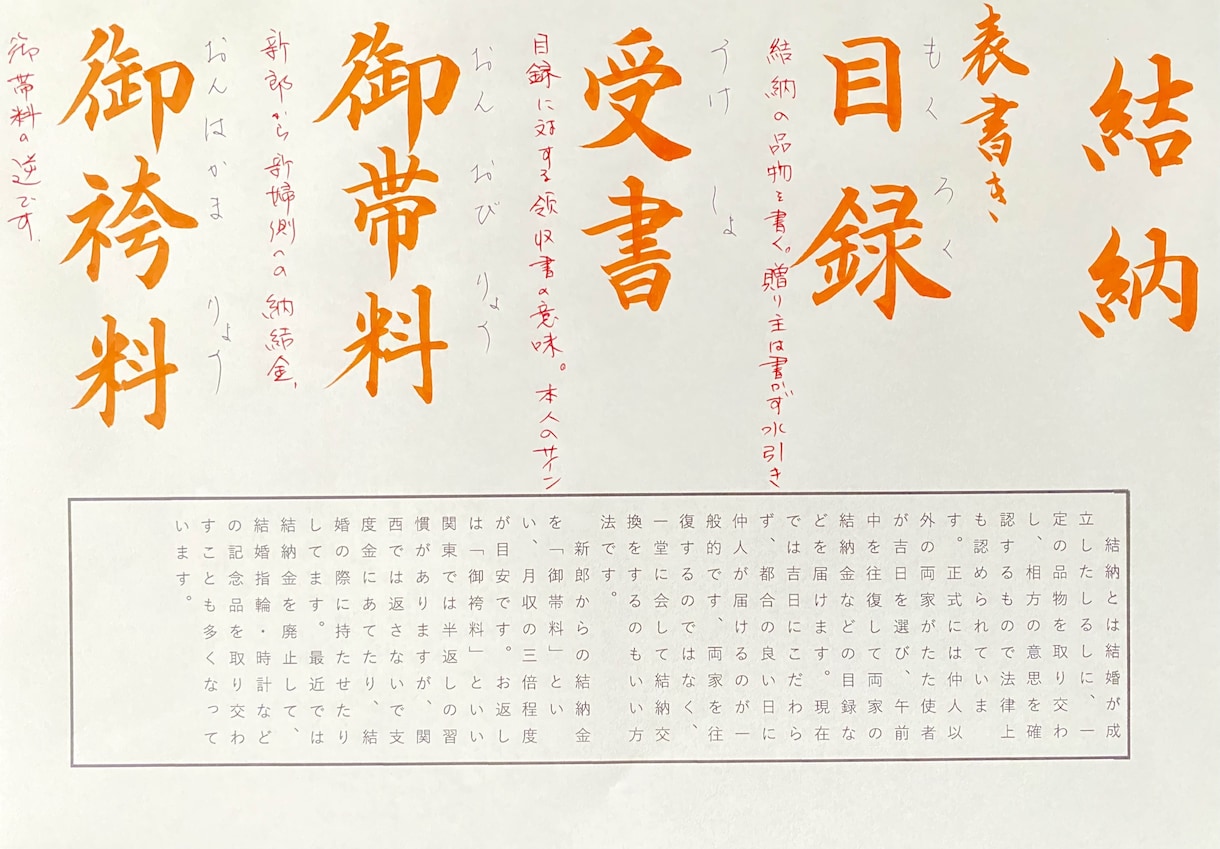 結納
表書き
もくろく
目録
結納の品物を書く。贈り主は書かず水引き
うけしょ
受書
目録に対する領収書の意味。本人のサイン
おんおびりょう
御帯料
新郎から新婦側への納結金、
おんはかまりょう
御袴料
御帯料の逆です。
結納とは結婚が成
立したしるしに、一
定の品物を取り交わ
し、相方の意思を確
認するもので法律上
も認められていま
す。正式には仲人以
外の両家がたた使者
が吉日を選び、午前
中を往復して両家の
結納金などの目録な
どを届けます。現在
では吉日にこだわら
ず、都合の良い日に
仲人が届けるのが一
般的です、両家を往
復するのではなく、
一堂に会して結納交
換をするのもいい方
法です。
新郎からの結納金
を「御帯料」とい
い、月収の三倍程度
が目安です。お返し
は「御袴料」といい
関東では半返しの習
慣がありますが、関
西では返さないで支
度金にあてたり、結
婚の際に持たせたり
してます。最近では
結納金を廃止して、
結婚指輪・時計など
の記念品を取り交わ
すことも多くなって
います。